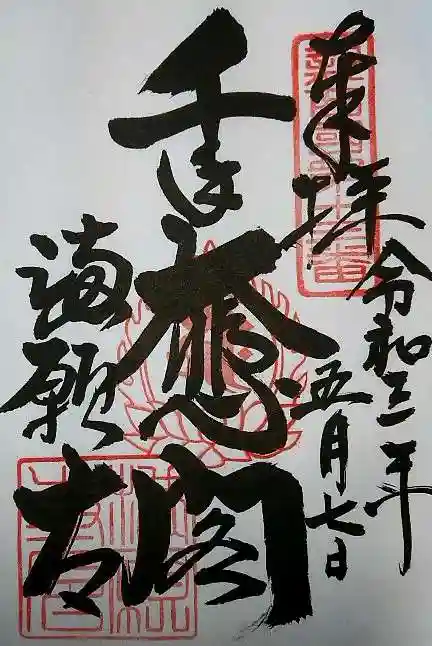 奉拝
令和三年
五月七日
千手大悲閣
満願寺